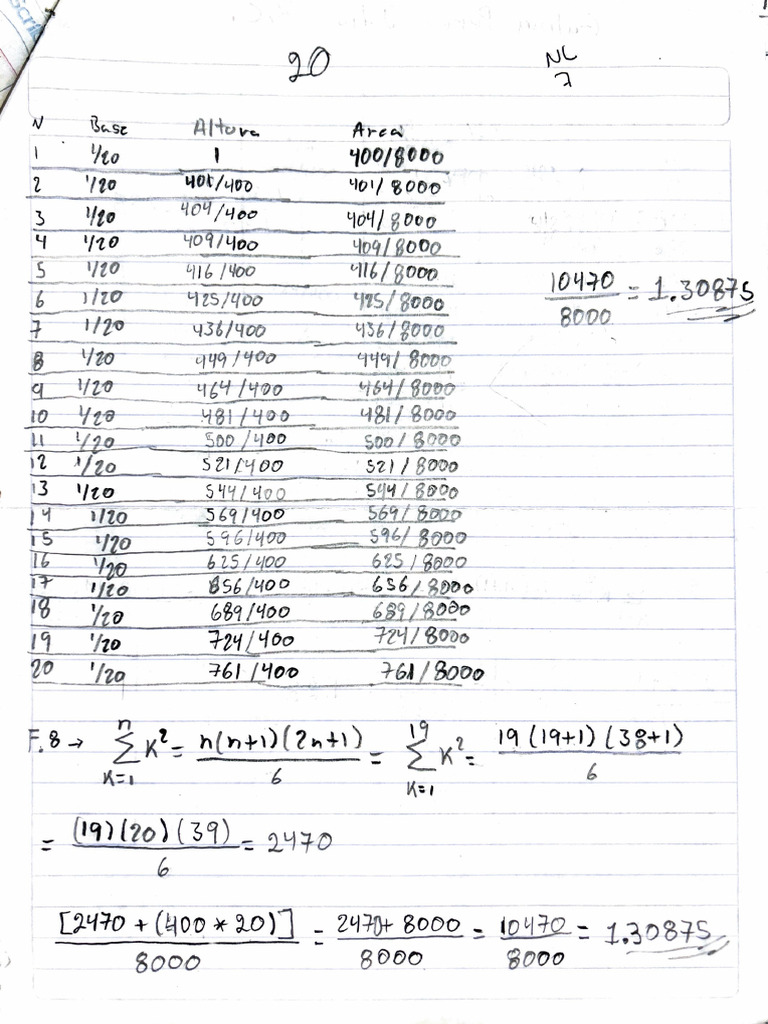 20
NL
7
N Base Altura Area
1 1/20 1 400/8000
2 1/20 401/400 401/8000
3 1/20 404/400 404/8000
4 1/20 409/400 409/8000
5 1/20 416/400 416/8000
6 1/20 425/400 425/8000
7 1/20 436/400 436/8000
8 1/20 449/400 449/8000
9 1/20 464/400 464/8000
10 1/20 481/400 481/8000
11 1/20 500/400 500/8000
12 1/20 521/400 521/8000
13 1/20 544/400 544/8000
14 1/20 569/400 569/8000
15 1/20 596/400 596/8000
16 1/20 625/400 625/8000
17 1/20 656/400 656/8000
18 1/20 689/400 689/8000
19 1/20 724/400 724/8000
20 1/20 761/400 761/8000
10470/8000 = 1.30875
F.8 → ∑_{K=1}^{n} K² = n(n+1)(2n+1)/6 = ∑_{K=1}^{19} K² = 19(19+1)(38+1)/6
= (19)(20)(39)/6 = 2470
[2470 + (400 * 20)]/8000 = 2470+8000/8000 = 10470/8000 = 1.30875